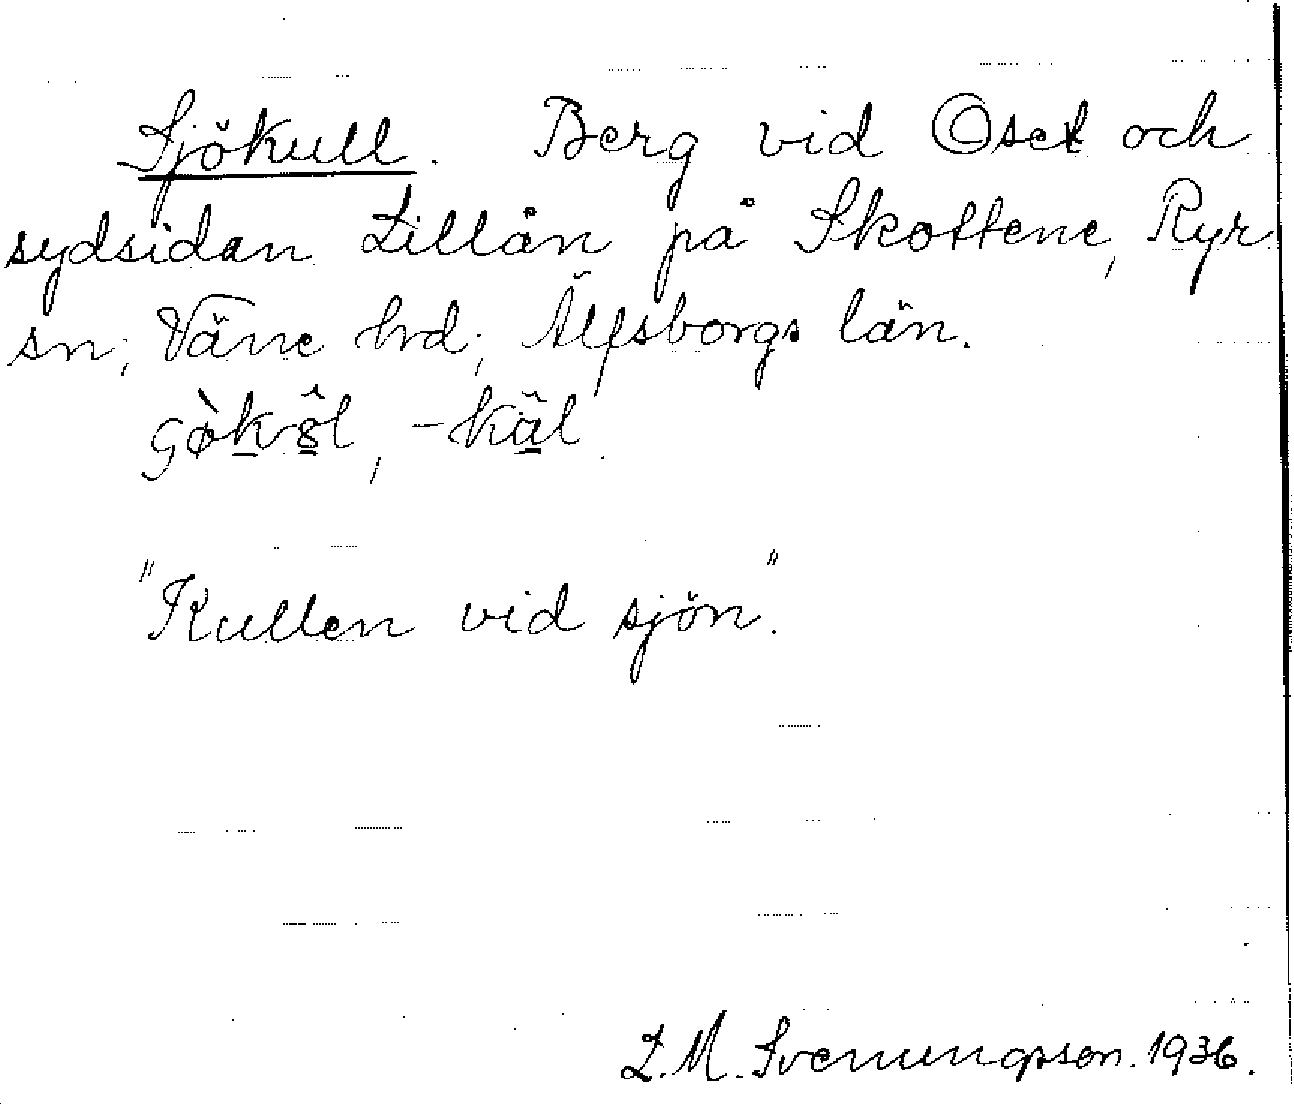 Sjökull. Berg vid Oset och
sydsidan Lillån på Skottene, Ryr
sn, Väne hrd, Älfsborgs län.
"Kullen vid sjön".
L. M. Svenungsson. 1936.